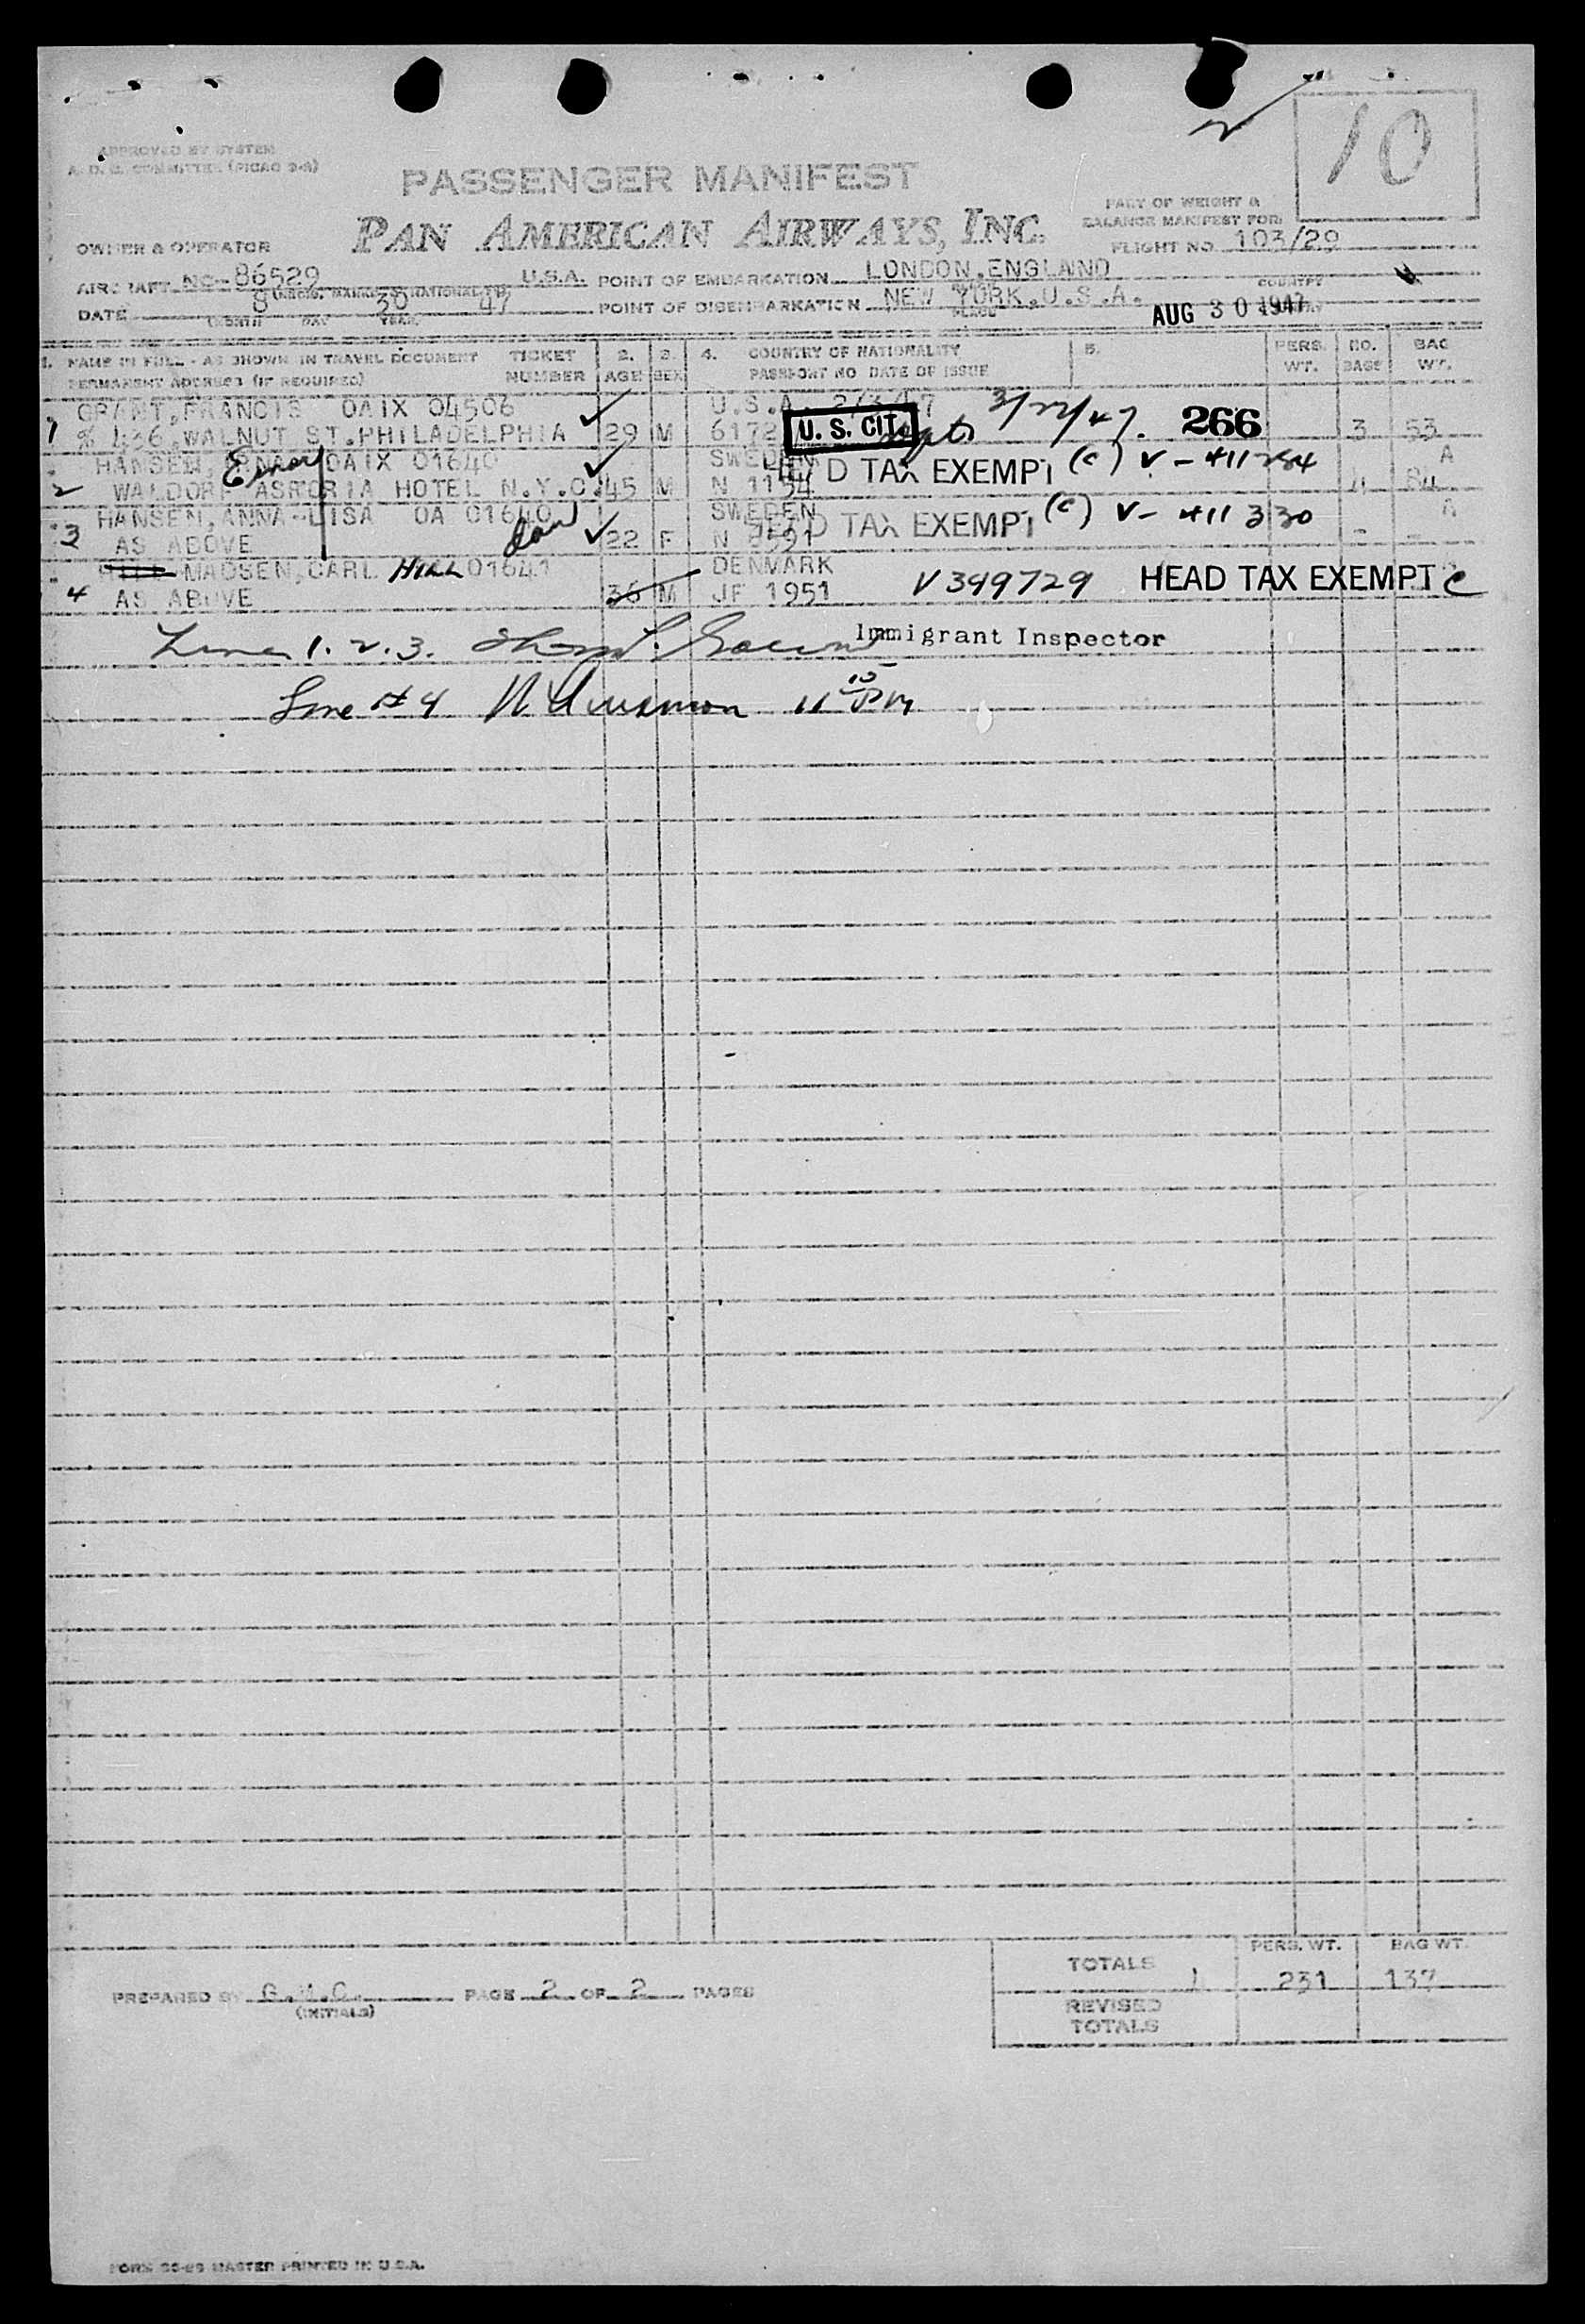 10
APPROVED BY SYSTEM
A. D. C. COMMITTEE (PICAO 2-8)
PASSENGER MANIFEST
PART OF WEIGHT &
BALANCE MANIFEST FOR:
OWNER & OPERATOR PAN AMERICAN AIRWAYS, INC. FLIGHT NO. 103/29
AIRCRAFT NC-86529 U.S.A. POINT OF EMBARKATION LONDON, ENGLAND COUNTRY
DATE 8 30 47 POINT OF DISEMBARKATION NEW YORK, U.S.A. AUG 30 1947
(MONTH DAY YEAR PLACE
1. NAME IN FULL - AS SHOWN IN TRAVEL DOCUMENT TICKET 2. 3. 4. COUNTRY OF NATIONALITY 5. PERS. NO. BAG
PERMANENT ADDRESS (IF REQUIRED) NUMBER AGE SEX PASSPORT NO DATE OF ISSUE WT. BAGS WT.
GRANT, FRANCIS OAIX 04506 U.S.A. 2/3/47 3/22/47. 266
1 % 436, WALNUT ST. PHILADELPHIA 29 M 6172 U. S. CIT. 3 53
HANSEN, OAIX 01640 SWEDEN HEAD TAX EXEMPT (c) V-411284 A
2 WALDORF ASTORIA HOTEL N.Y.C. 45 M N 1154 4 84
HANSEN, ANNA-LISA OA 01640 SWEDEN HEAD TAX EXEMPT (c) V-411330 A
3 AS ABOVE 22 F N - -
MADSEN, CARL HILL 01641 DENMARK
4 AS ABOVE 36 M JF 1951 V349729 HEAD TAX EXEMPT C
Lines 1. 2. 3. Immigrant Inspector
Line # 4 11 10 PM
TOTALS 4 PERS. WT. 231 BAG WT. 137
PREPARED BY (INITIALS) PAGE 2 OF 2 PAGES
REVISED
TOTALS
MASTER PRINTED IN U.S.A.